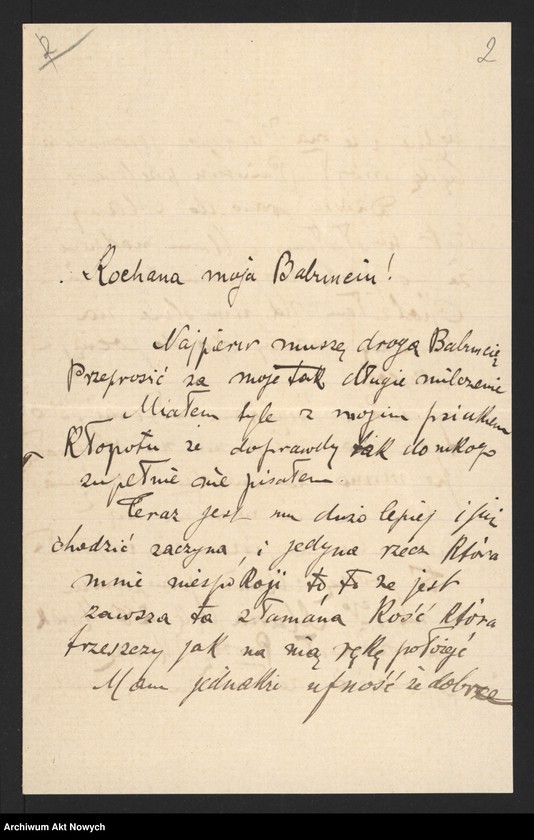 2
2
Kochana moja Babuniu!
Najpierw muszę drogą Babunię
Przeprosić za moje tak długie milczenie
Miałem tyle z mojim psiakiem
Kłopotu że doprawdy tak do nikogo
zupełnie nie pisałem
Teraz jest mu dużo lepiej i już
chodzić zaczyna, i jedyna rzecz która
mnie niespokoji to to że jest
zawsza ta złamana Kość która
trzeszczy jak na nią rękę położyć
Mam jednakże ufność że dobrze
Archiwum Akt Nowych